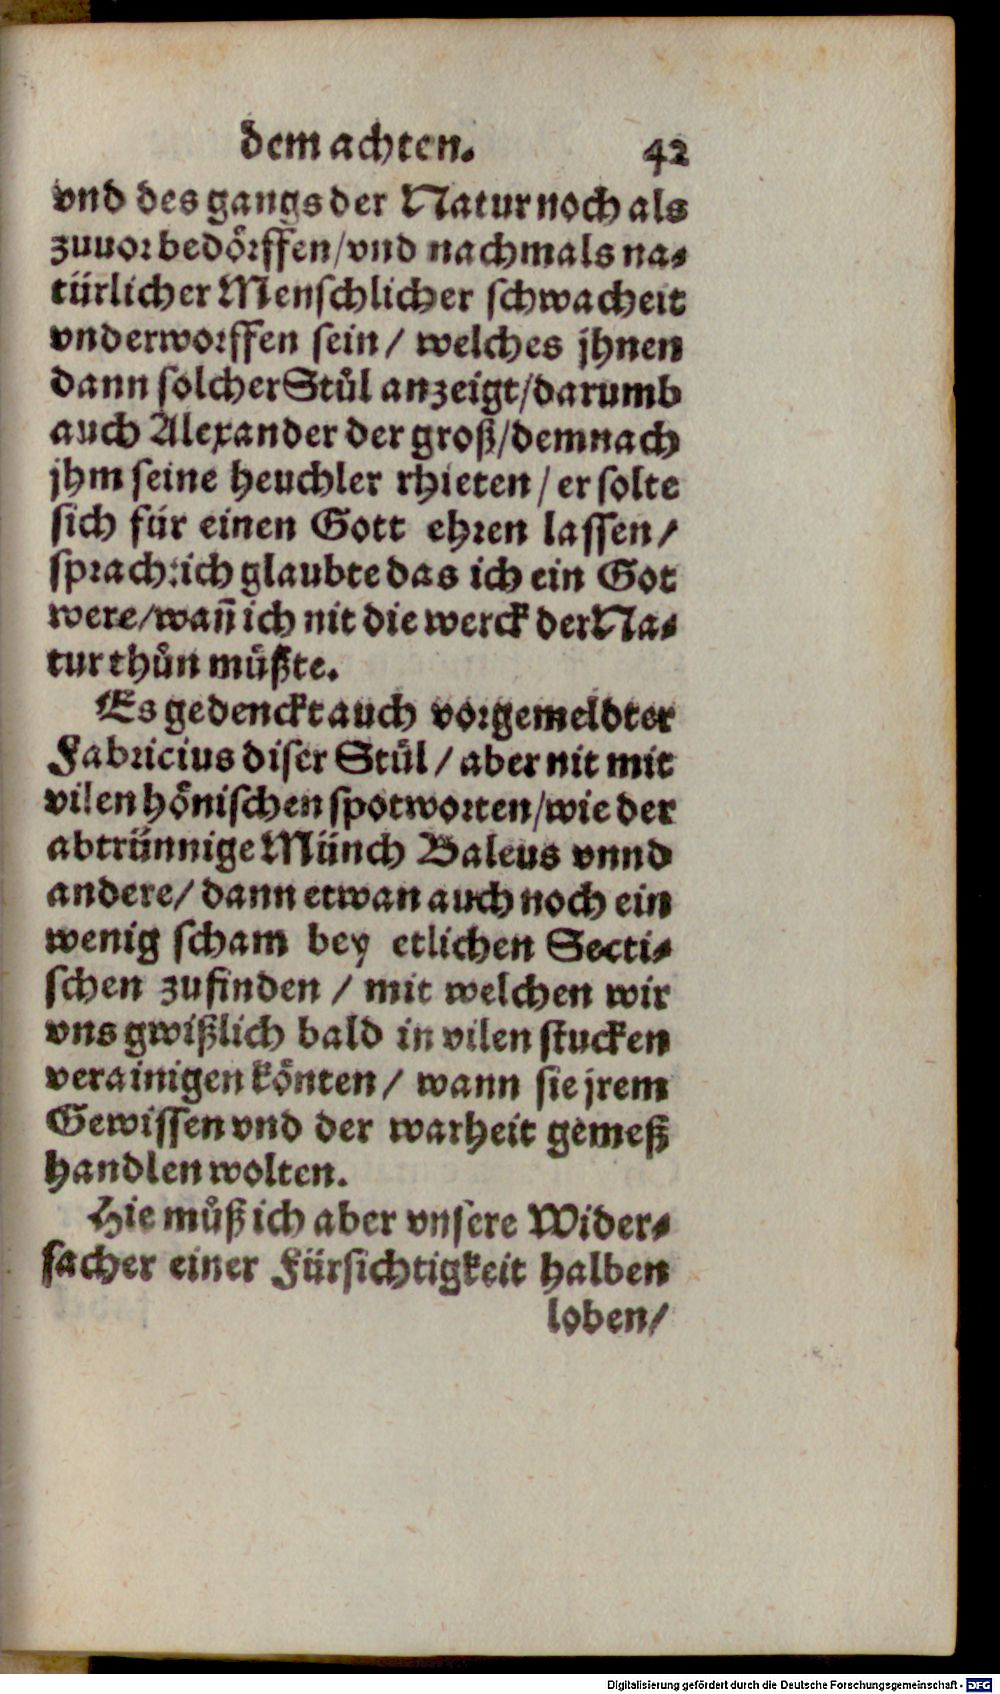 dem achten. 42
vnd des gangs der Natur noch als
zuuor bedörffen/vnd nachmals na-
türlicher Menschlicher schwacheit
vnderworffen sein/ welches jhnen
dann solcher Stůl anzeigt/darumb
auch Alexander der groß/demnach
jhm seine heuchler rhieten/ er solte
sich für einen Gott ehren lassen/
sprach: ich glaubte das ich ein Got
were/wañ ich nit die werck der Na-
tur thůn můßte.
Es gedenckt auch vorgemeldter
Fabricius diser Stůl/ aber nit mit
vilen hönischen spotworten/wie der
abtrünnige Münch Baleus vnnd
andere/ dann etwan auch noch ein
wenig scham bey etlichen Secti-
schen zufinden/ mit welchen wir
vns gwißlich bald in vilen stucken
verainigen könten/ wann sie jrem
Gewissen vnd der warheit gemeß
handlen wolten.
Hie můß ich aber vnsere Wider-
sacher einer Fürsichtigkeit halben
loben/
Digitalisierung gefördert durch die Deutsche Forschungsgemeinschaft - DFG